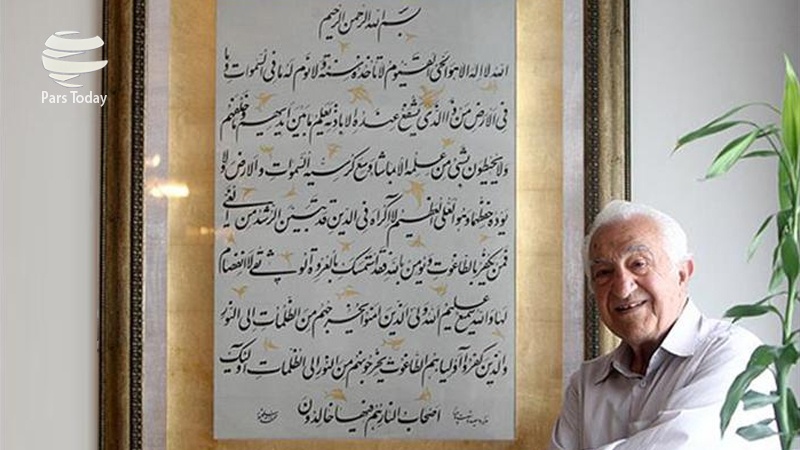 Pars Today
بسم الله الرحمن الرحیم
الله لا اله الا هو الحی القیوم لا تاخذه سنة و لا نوم له ما فی السموات و ما
فی الارض من ذا الذی یشفع عنده الا باذنه یعلم ما بین ایدیهم و ما خلفهم
ولا یحیطون بشئ من علمه الا بما شا وسع کرسیه السموات والارض ولا
یؤده حفظهما وهو العلی العظیم لا اکراه فی الدین قد تبین الرشد من الغی
فمن یکفر بالطاغوت و یومن بالله فقد استمسک بالعروة الوثقی لا انفصام
لها والله سمیع علیم الله ولی الذین امنوا یخرجهم من الظلمات الی النور
والذین کفروا اولیاءهم الطاغوت یخرجونهم من النور الی الظلمات اولئک
اصحاب النار هم فیها خالدون